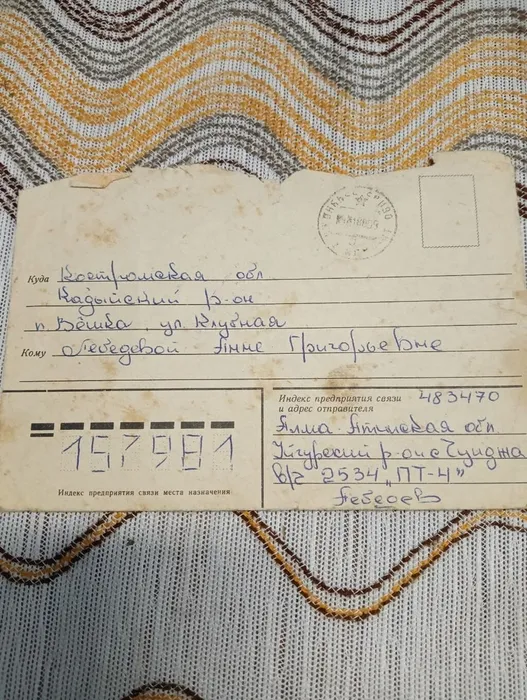 Куда Костромская обл
Кадыйский р-он
п Вёшка, ул. Клубная
Кому Лебедевой Анне Григорьевне
Индекс предприятия связи
и адрес отправителя
483470
Алма Атинская обл
Уйгурский р-он с Чунджа
в/ч 2534 „ПТ-Ч"
Лебедев
157981
Индекс предприятия связи места назначения